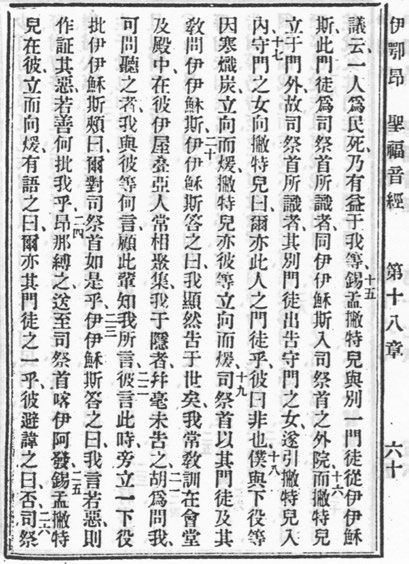 伊鄂昂 聖福音經 第十八章 六十
議云一人爲民死乃有益于我等、十五錫孟撇特兒與別一門徒從伊伊穌
斯、此門徒爲司祭首所識者、同伊伊穌斯入司祭首之外院、十六而撇特兒
立于門外、故司祭首所識者、其別門徒出告守門之女、遂引撇特兒入
內、十七守門之女向撇特兒曰、爾亦此人之門徒乎、彼曰、非也、十八僕與下役等
因寒熾炭立向而煖、撇特兒亦彼等立向而煖、十九司祭首以其門徒及其
敎問伊伊穌斯、二十伊伊穌斯答之曰、我顯然告于世矣、我常敎訓在會堂
及殿中、在彼伊屋疊亞人常相聚集、我于隱者幷毫未告之、二一胡爲問我、
可問聽之者、我與彼等何言、顧此輩知我所言、二二彼言此時、旁立一下役
批伊伊穌斯頰曰、爾對司祭首如是乎、二三伊伊穌斯答之曰、我言若惡、則
作証其惡、若善何批我乎、二四昂那縛之送至司祭首喀伊阿發、二五錫孟撇特
兒在彼立而向煖、有語之曰、爾亦其門徒之一乎、彼避諱之曰、否、二六司祭